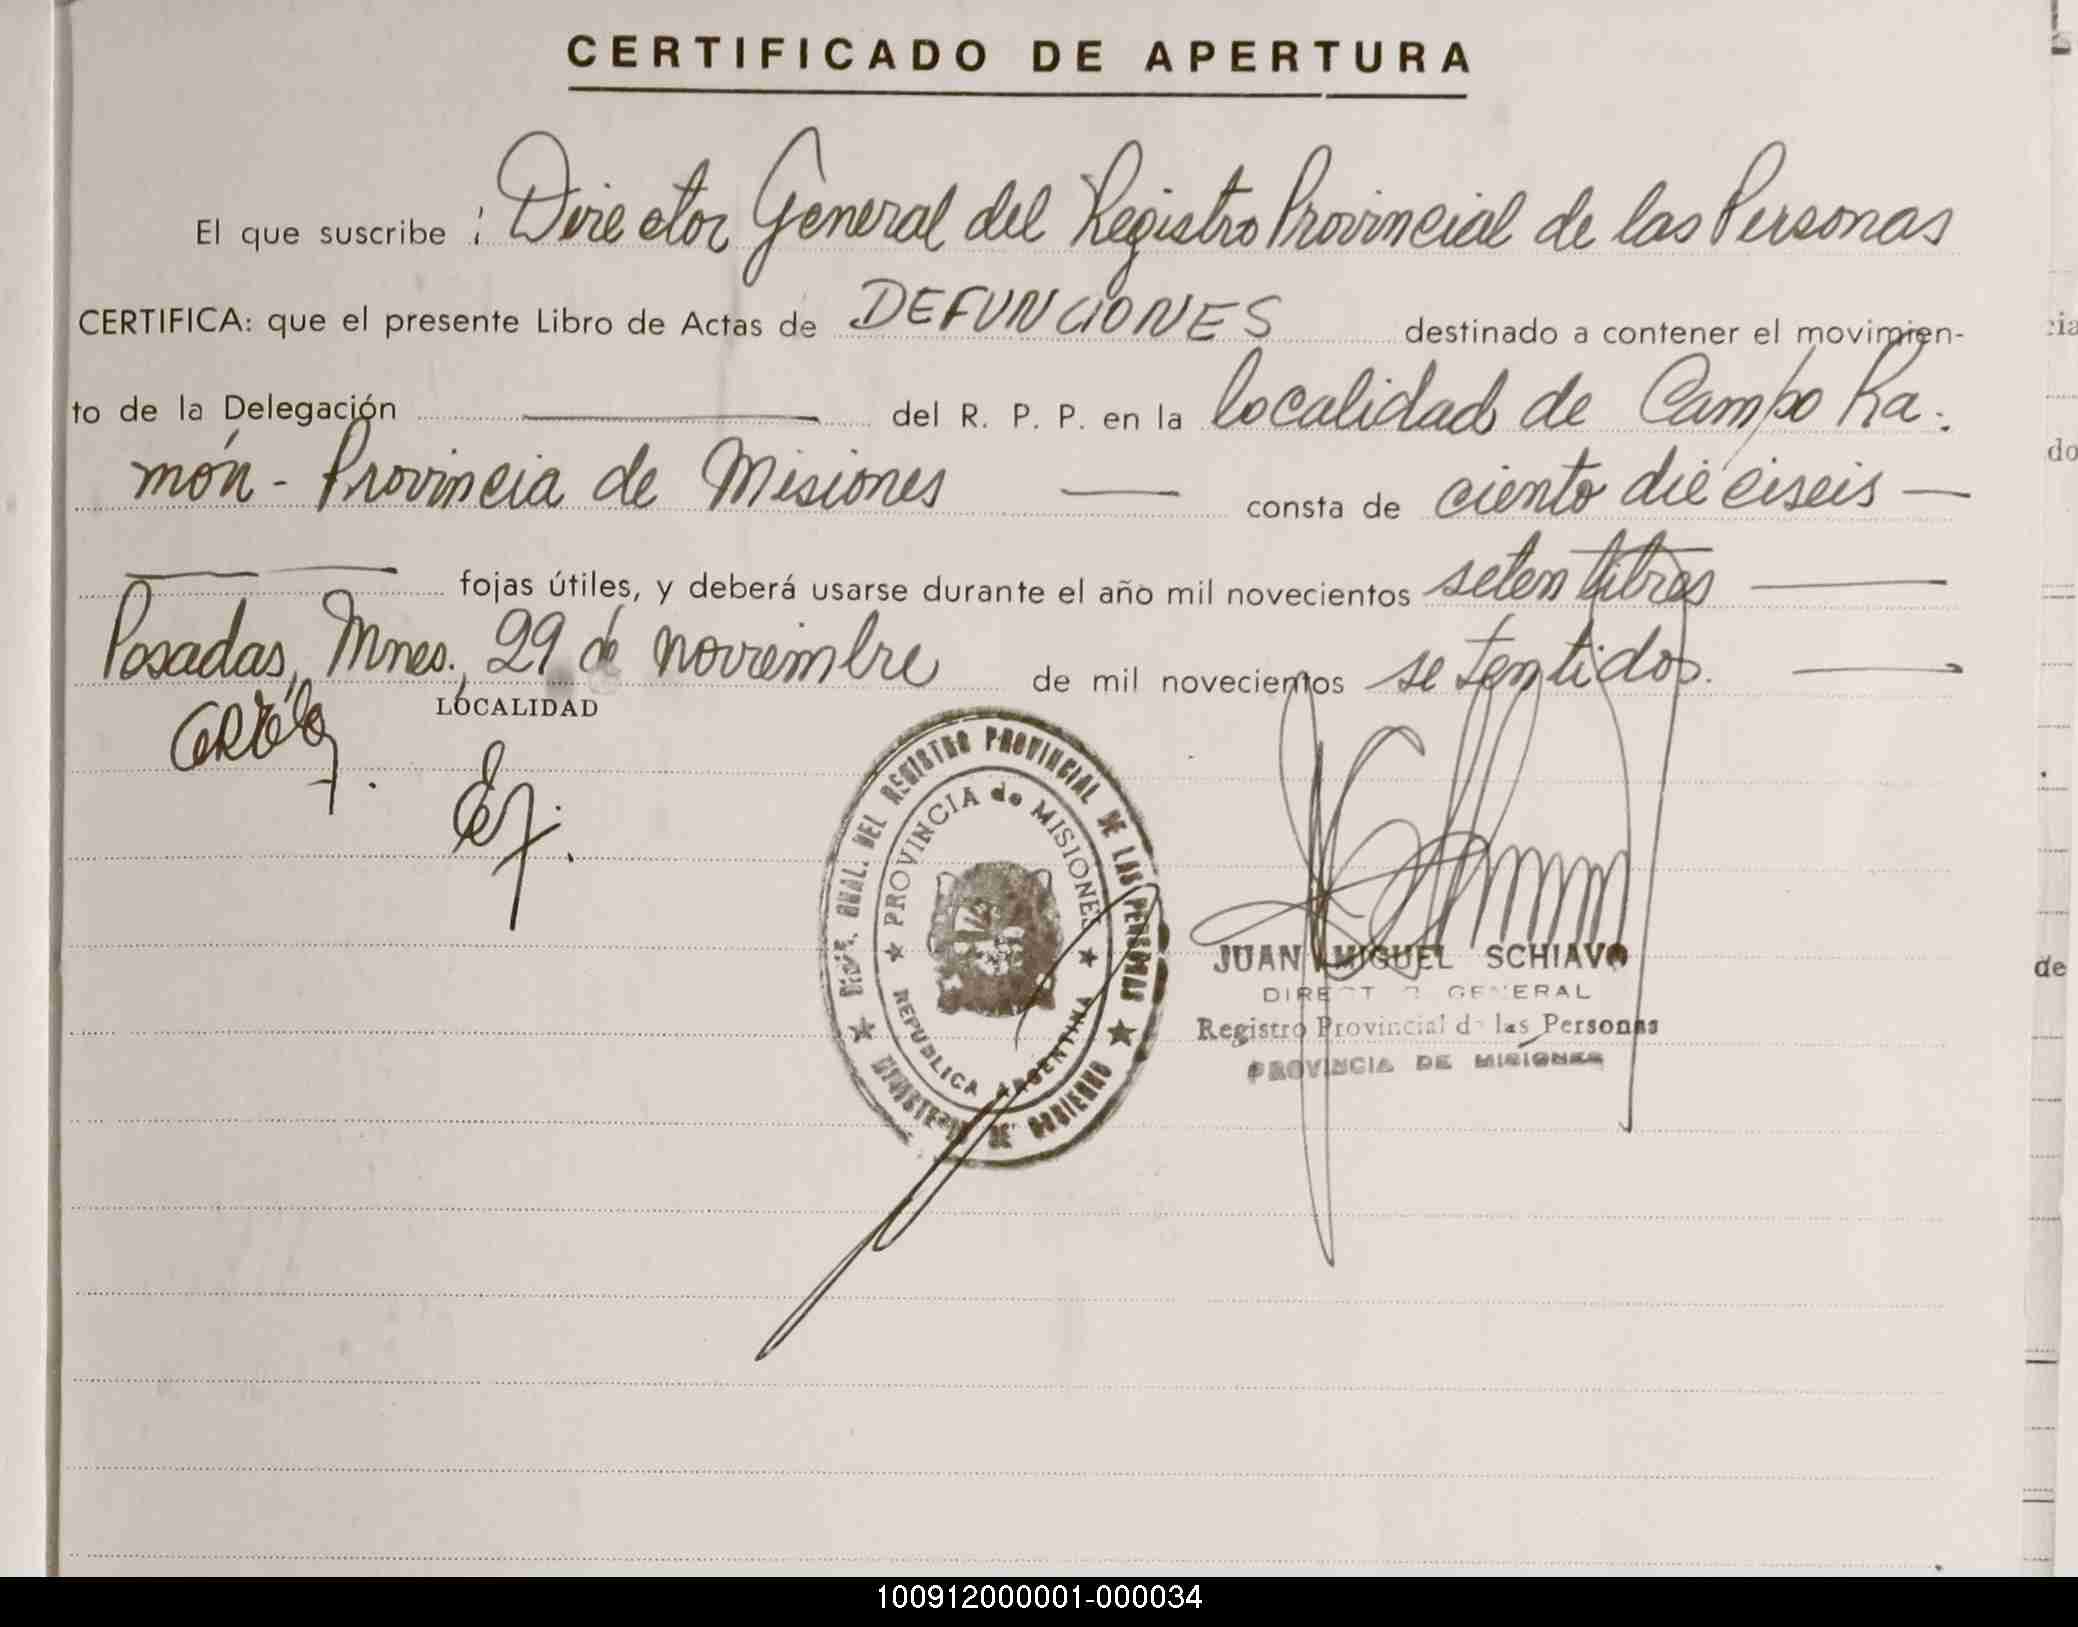 CERTIFICADO DE APERTURA
El que suscribe ; Director General del Registro Provincial de las Personas
CERTIFICA: que el presente Libro de Actas de DEFUNCIONES destinado a contener el movimien-
to de la Delegación ——— del R. P. P. en la localidad de Campo Ra-
món - Provincia de Misiones — consta de ciento dieciseis —
——— fojas útiles, y deberá usarse durante el año mil novecientos setentitres ———
Posadas, Mnes., 29 de noviembre de mil novecientos setentidos. ———
LOCALIDAD
DIREC. GRAL. DEL REGISTRO PROVINCIAL DE LAS PERSONAS
PROVINCIA de MISIONES
REPUBLICA ARGENTINA
MINISTERIO DE GOBIERNO
JUAN MIGUEL SCHIAVO
DIRECTOR GENERAL
Registro Provincial de las Personas
PROVINCIA DE MISIONES
do
de
100912000001-000034